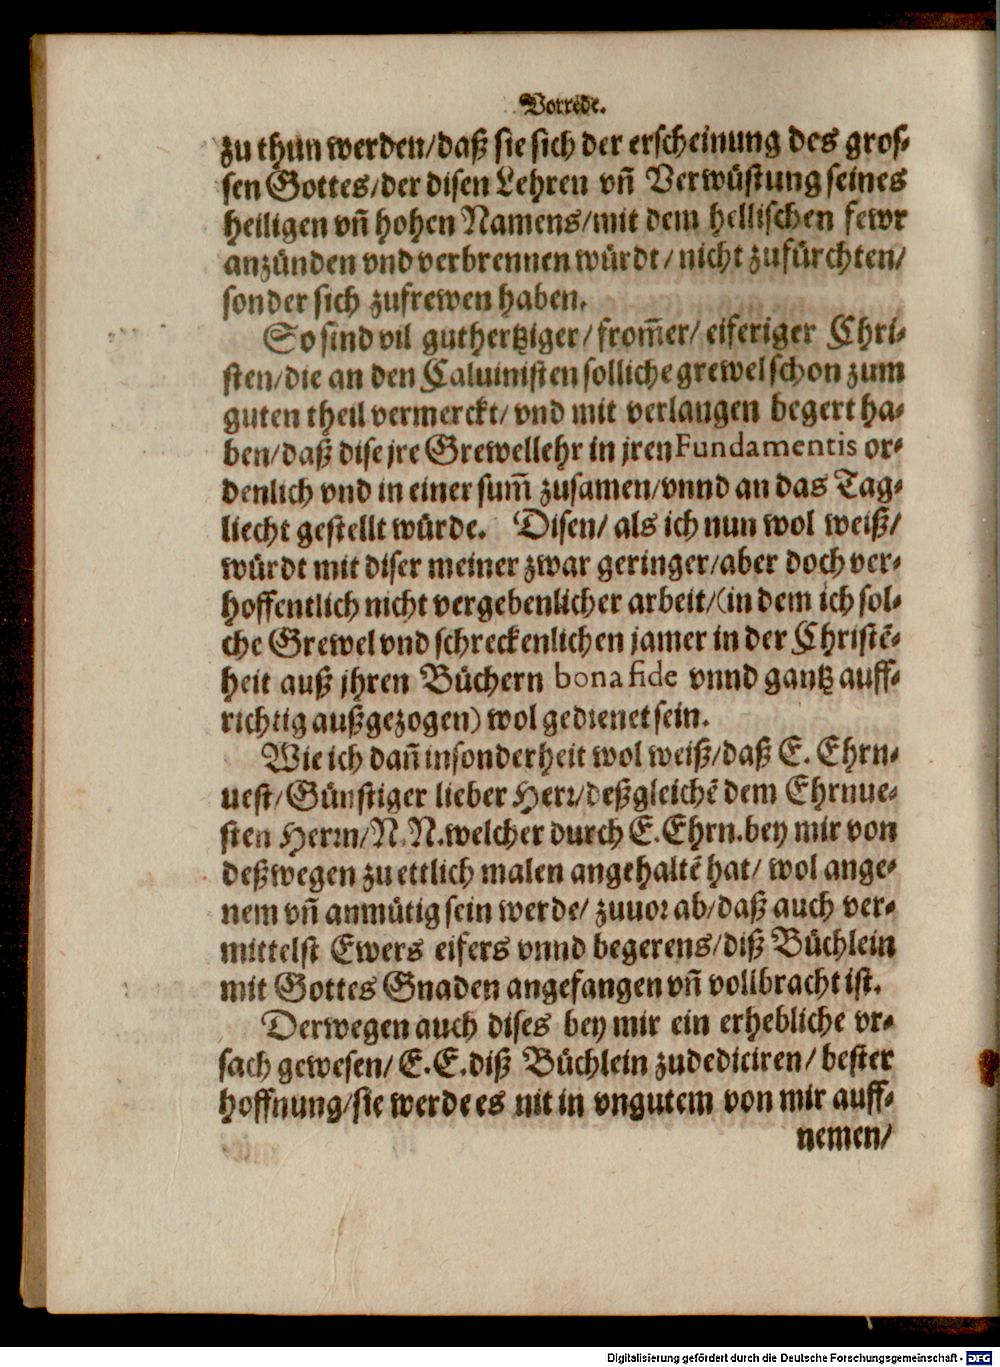 Vorrede.
zu thun werden/daß sie sich der erscheinung des gros-
sen Gottes/der disen Lehren vñ Verwüstung seines
heiligen vñ hohen Namens/mit dem hellischen fewr
anzünden vnd verbrennen würdt/nicht zufürchten/
sonder sich zufrewen haben.
So sind vil guthertziger/from̃er/eiferiger Chri-
sten/die an den Caluinisten solliche grewel schon zum
guten theil vermerckt/vnd mit verlangen begert ha-
ben/daß dise jre Grewellehr in jren Fundamentis or-
denlich vnd in einer sum̃ zusamen/vnnd an das Tag-
liecht gestellt würde. Disen/als ich nun wol weiß/
würdt mit diser meiner zwar geringer/aber doch ver-
hoffentlich nicht vergebenlicher arbeit/(in dem ich sol-
che Grewel vnd schreckenlichen jamer in der Christẽ-
heit auß jhren Büchern bona fide vnnd gantz auff-
richtig außgezogen) wol gedienet sein.
Wie ich dañ insonderheit wol weiß/daß E. Ehrn-
uest/Günstiger lieber Herr/deßgleichẽ dem Ehrnue-
sten Herrn/N. N. welcher durch E. Ehrn. bey mir von
deßwegen zu ettlich malen angehaltẽ hat/wol ange-
nem vñ anmütig sein werde/zuuor ab/daß auch ver-
mittelst Ewers eifers vnnd begerens/diß Büchlein
mit Gottes Gnaden angefangen vñ vollbracht ist.
Derwegen auch dises bey mir ein erhebliche vr-
sach gewesen/E. E. diß Büchlein zudediciren/bester
hoffnung/sie werde es nit in vngutem von mir auff-
nemen/
Digitalisierung gefördert durch die Deutsche Forschungsgemeinschaft - DFG